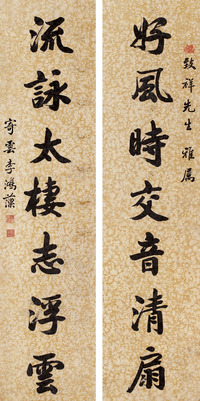 致祥先生雅属
好風時交音清扇
流詠太棲志浮雲
寄雲李鴻藻